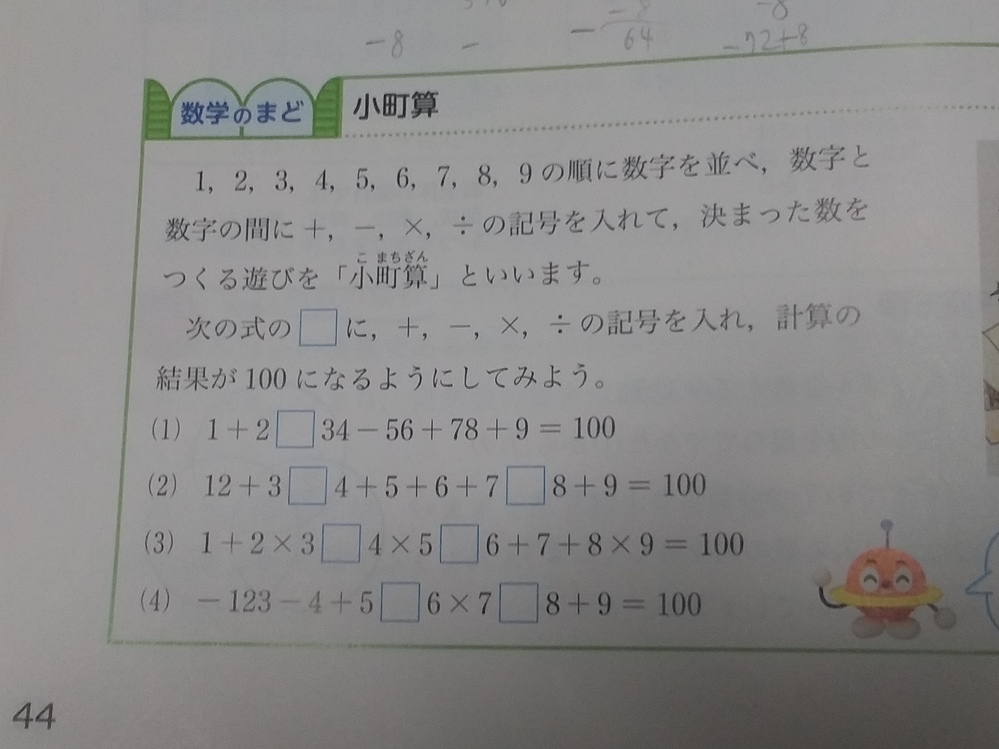 -8
-
-8
64
-8
-72+8
数学のまど
小町算
1, 2, 3, 4, 5, 6, 7, 8, 9の順に数字を並べ, 数字と
数字の間に+, -, ×, ÷の記号を入れて, 決まった数を
こ まちざん
つくる遊びを「小町算」といいます。
次の式の□に, +, -, ×, ÷の記号を入れ, 計算の
結果が100になるようにしてみよう。
(1) 1+2□34-56+78+9=100
(2) 12+3□4+5+6+7□8+9=100
(3) 1+2×3□4×5□6+7+8×9=100
(4) -123-4+5□6×7□8+9=100
44